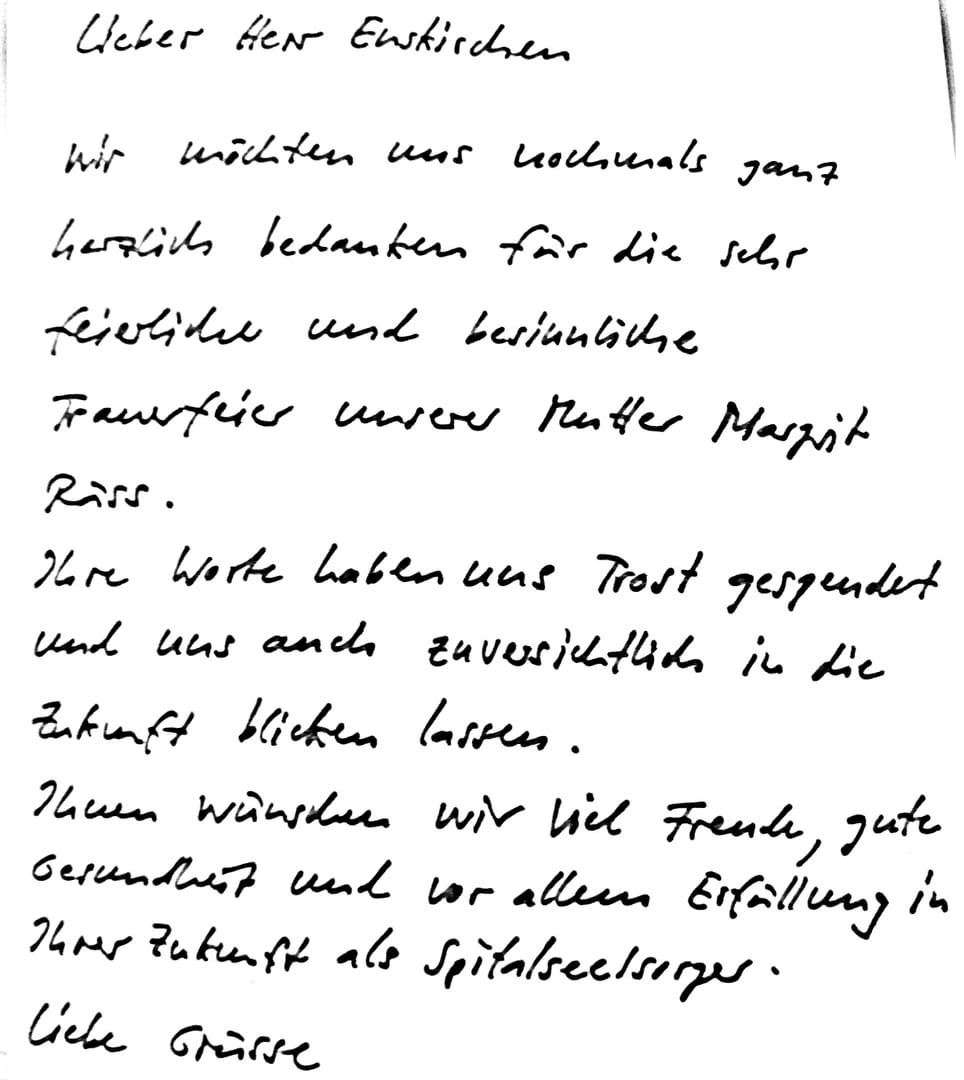 Lieber Herr Euskirchen
Wir möchten uns nochmals ganz
herzlich bedanken für die sehr
feierliche und besinnliche
Trauerfeier unserer Mutter Margrit
Räss.
Ihre Worte haben uns Trost gespendet
und uns auch zuversichtlich in die
Zukunft blicken lassen.
Ihnen wünschen wir viel Freude, gute
Gesundheit und vor allem Erfüllung in
Ihrer Zukunft als Spitalseelsorger.
Liebe Grüsse